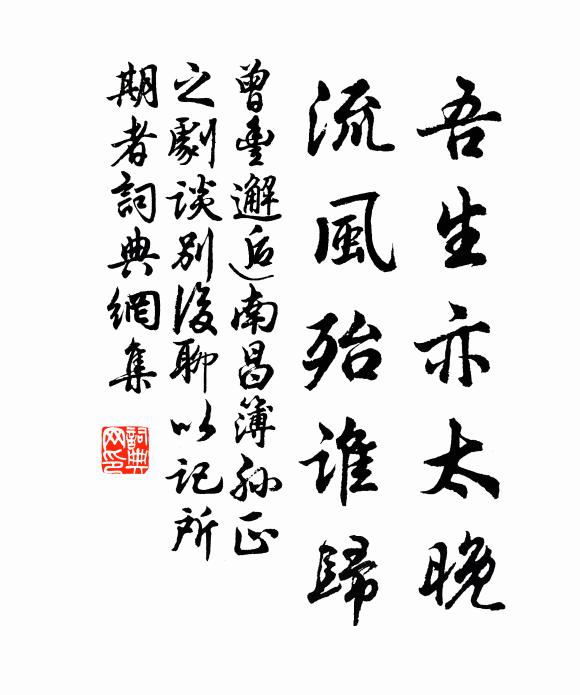 吾生亦太晚
流風殆誰歸
曾豐邂逅南昌簿孫正
之劇談別後聊以記所
期者詞典網集
詞典
网印